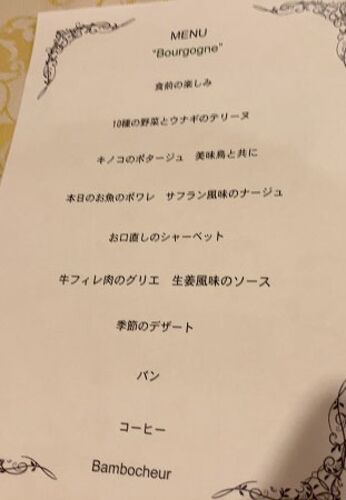 MENU
“Bourgogne”
食前の楽しみ
10種の野菜とウナギのテリーヌ
キノコのポタージュ　美味鳥と共に
本日のお魚のポワレ　サフラン風味のナージュ
お口直しのシャーベット
牛フィレ肉のグリエ　生姜風味のソース
季節のデザート
パン
コーヒー
Bambocheur